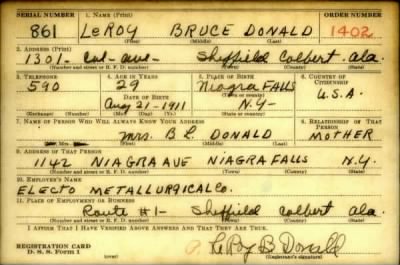 SERIAL NUMBER 1. NAME (Print) ORDER NUMBER
861 LeROY BRUCE DONALD 1402
(First) (Middle) (Last)
2. ADDRESS (Print)
1301- Ave- Sheffield Colbert Ala.
(Number and street or R. F. D. number) (Town) (County) (State)
3. TELEPHONE 4. AGE IN YEARS 5. PLACE OF BIRTH 6. COUNTRY OF CITIZENSHIP
590 29 Niagra FALLS
(Town or county)
DATE OF BIRTH
Aug 21-1911 N.Y- U.S.A.
(Exchange) (Number) (Mo.) (Day) (Yr.) (State or country)
7. NAME OF PERSON WHO WILL ALWAYS KNOW YOUR ADDRESS 8. RELATIONSHIP OF THAT PERSON
Mrs. B L. DONALD MOTHER
(Mr., Mrs., Miss) (First) (Middle) (Last)
9. ADDRESS OF THAT PERSON
1142 NIAGRA AVE NIAGRA FALLS N.Y.
(Number and street or R. F. D. number) (Town) (County) (State)
10. EMPLOYER'S NAME
ELECTO METALLURGICAL Co.
11. PLACE OF EMPLOYMENT OR BUSINESS
Route #1- Sheffield Colbert Ala.
(Number and street or R. F. D. number) (Town) (County) (State)
I AFFIRM THAT I HAVE VERIFIED ABOVE ANSWERS AND THAT THEY ARE TRUE.
REGISTRATION CARD
D. S. S. Form 1 (over) LeRoy B Donald
(Registrant's signature)